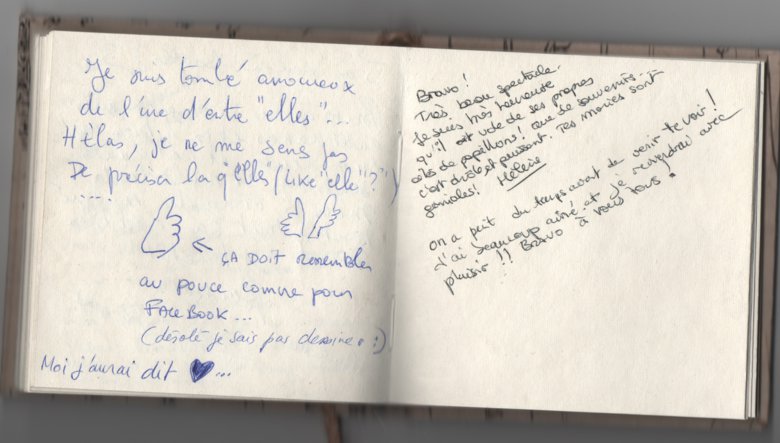 Je suis tombé amoureux
de l'une d'entre "elles"...
Hélas, je ne me sens pas
De préciser laq"elle" (Like "elle"?")
....
← ÇA DOIT ressembler
au pouce comme pour
FACEBOOK...
(désolé je sais pas dessiner :)
Moi j'aurai dit ♥...
Bravo!
Très beau spectacle.
Je suis très heureuse
qu'il ait volé de ses propres
ailes de papillons! que de souvenirs...
c'est drôle et puissant. Tes mories sont
géniales! Hélène
on a peit du temps avant de venir te voir!
J'ai beaucoup aimé et je reviendrai avec
plaisir!! Bravo à vous tous.